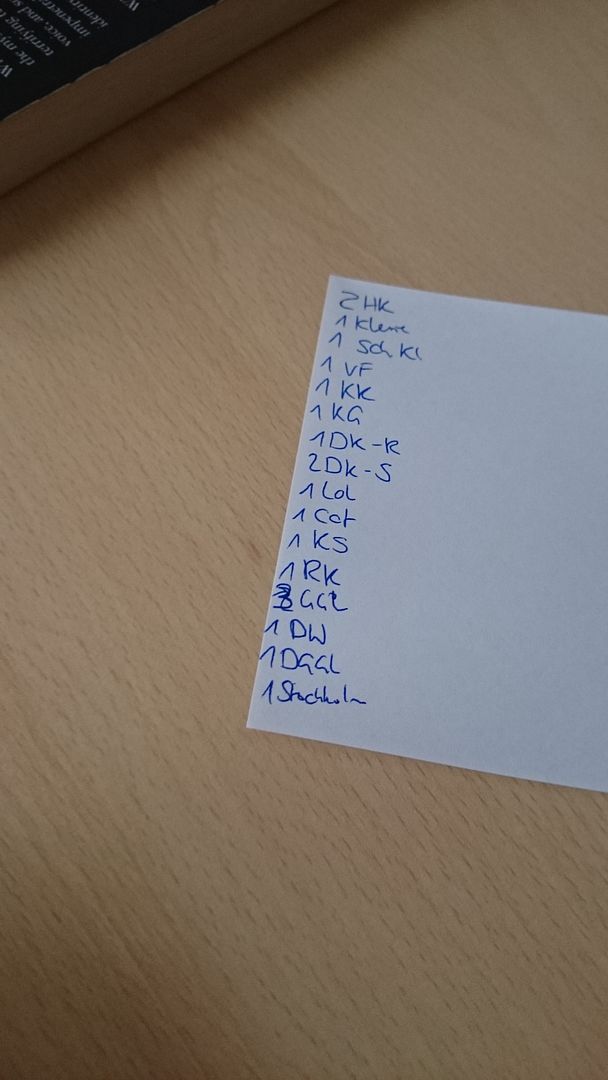 the my
terrifying
voice, and s
impenetra
identi
2 HK
1 Kleine
1 Sch Kl
1 VF
1 KK
1 KG
1 DK-R
2 DK-S
1 Lol
1 Cot
1 KS
1 RK
GGL
1 DW
1 DGGL
1 Stockholm